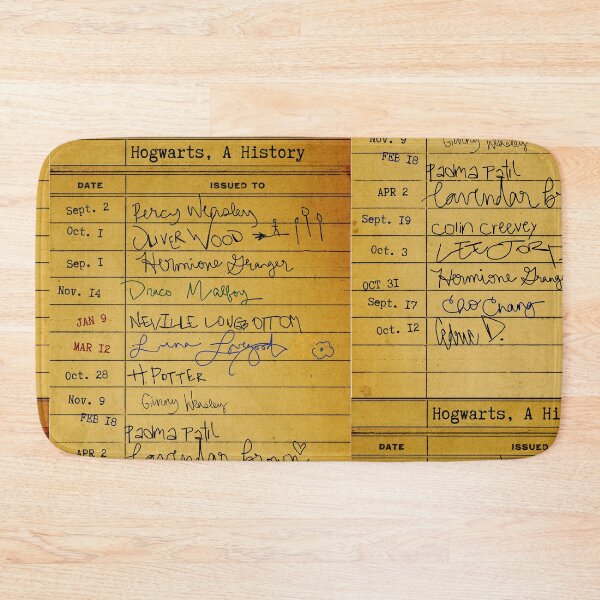 Hogwarts, A History
DATE ISSUED TO
Sept. 2 Percy Weasley
Oct. 1 OLIVER WOOD
Sep. 1 Hermione Granger
Nov. 14 Draco Malfoy
JAN 9 NEVILLE LONGBOTTOM
MAR 12 Luna Lovegood
Oct. 28 H. POTTER
Nov. 9 Ginny Weasley
FEB 18 Padma Patil
APR 2 Lavendar Brown
Nov. 9 Ginny Weasley
FEB 18 Padma Patil
APR 2 Lavendar B
Sept. 19 Colin Creevey
Oct. 3 LEE JOR
OCT 31 Hermione Grang
Sept. 17 Cho Chang
Oct. 12 Cedric D.
Hogwarts, A Hi
DATE ISSUED